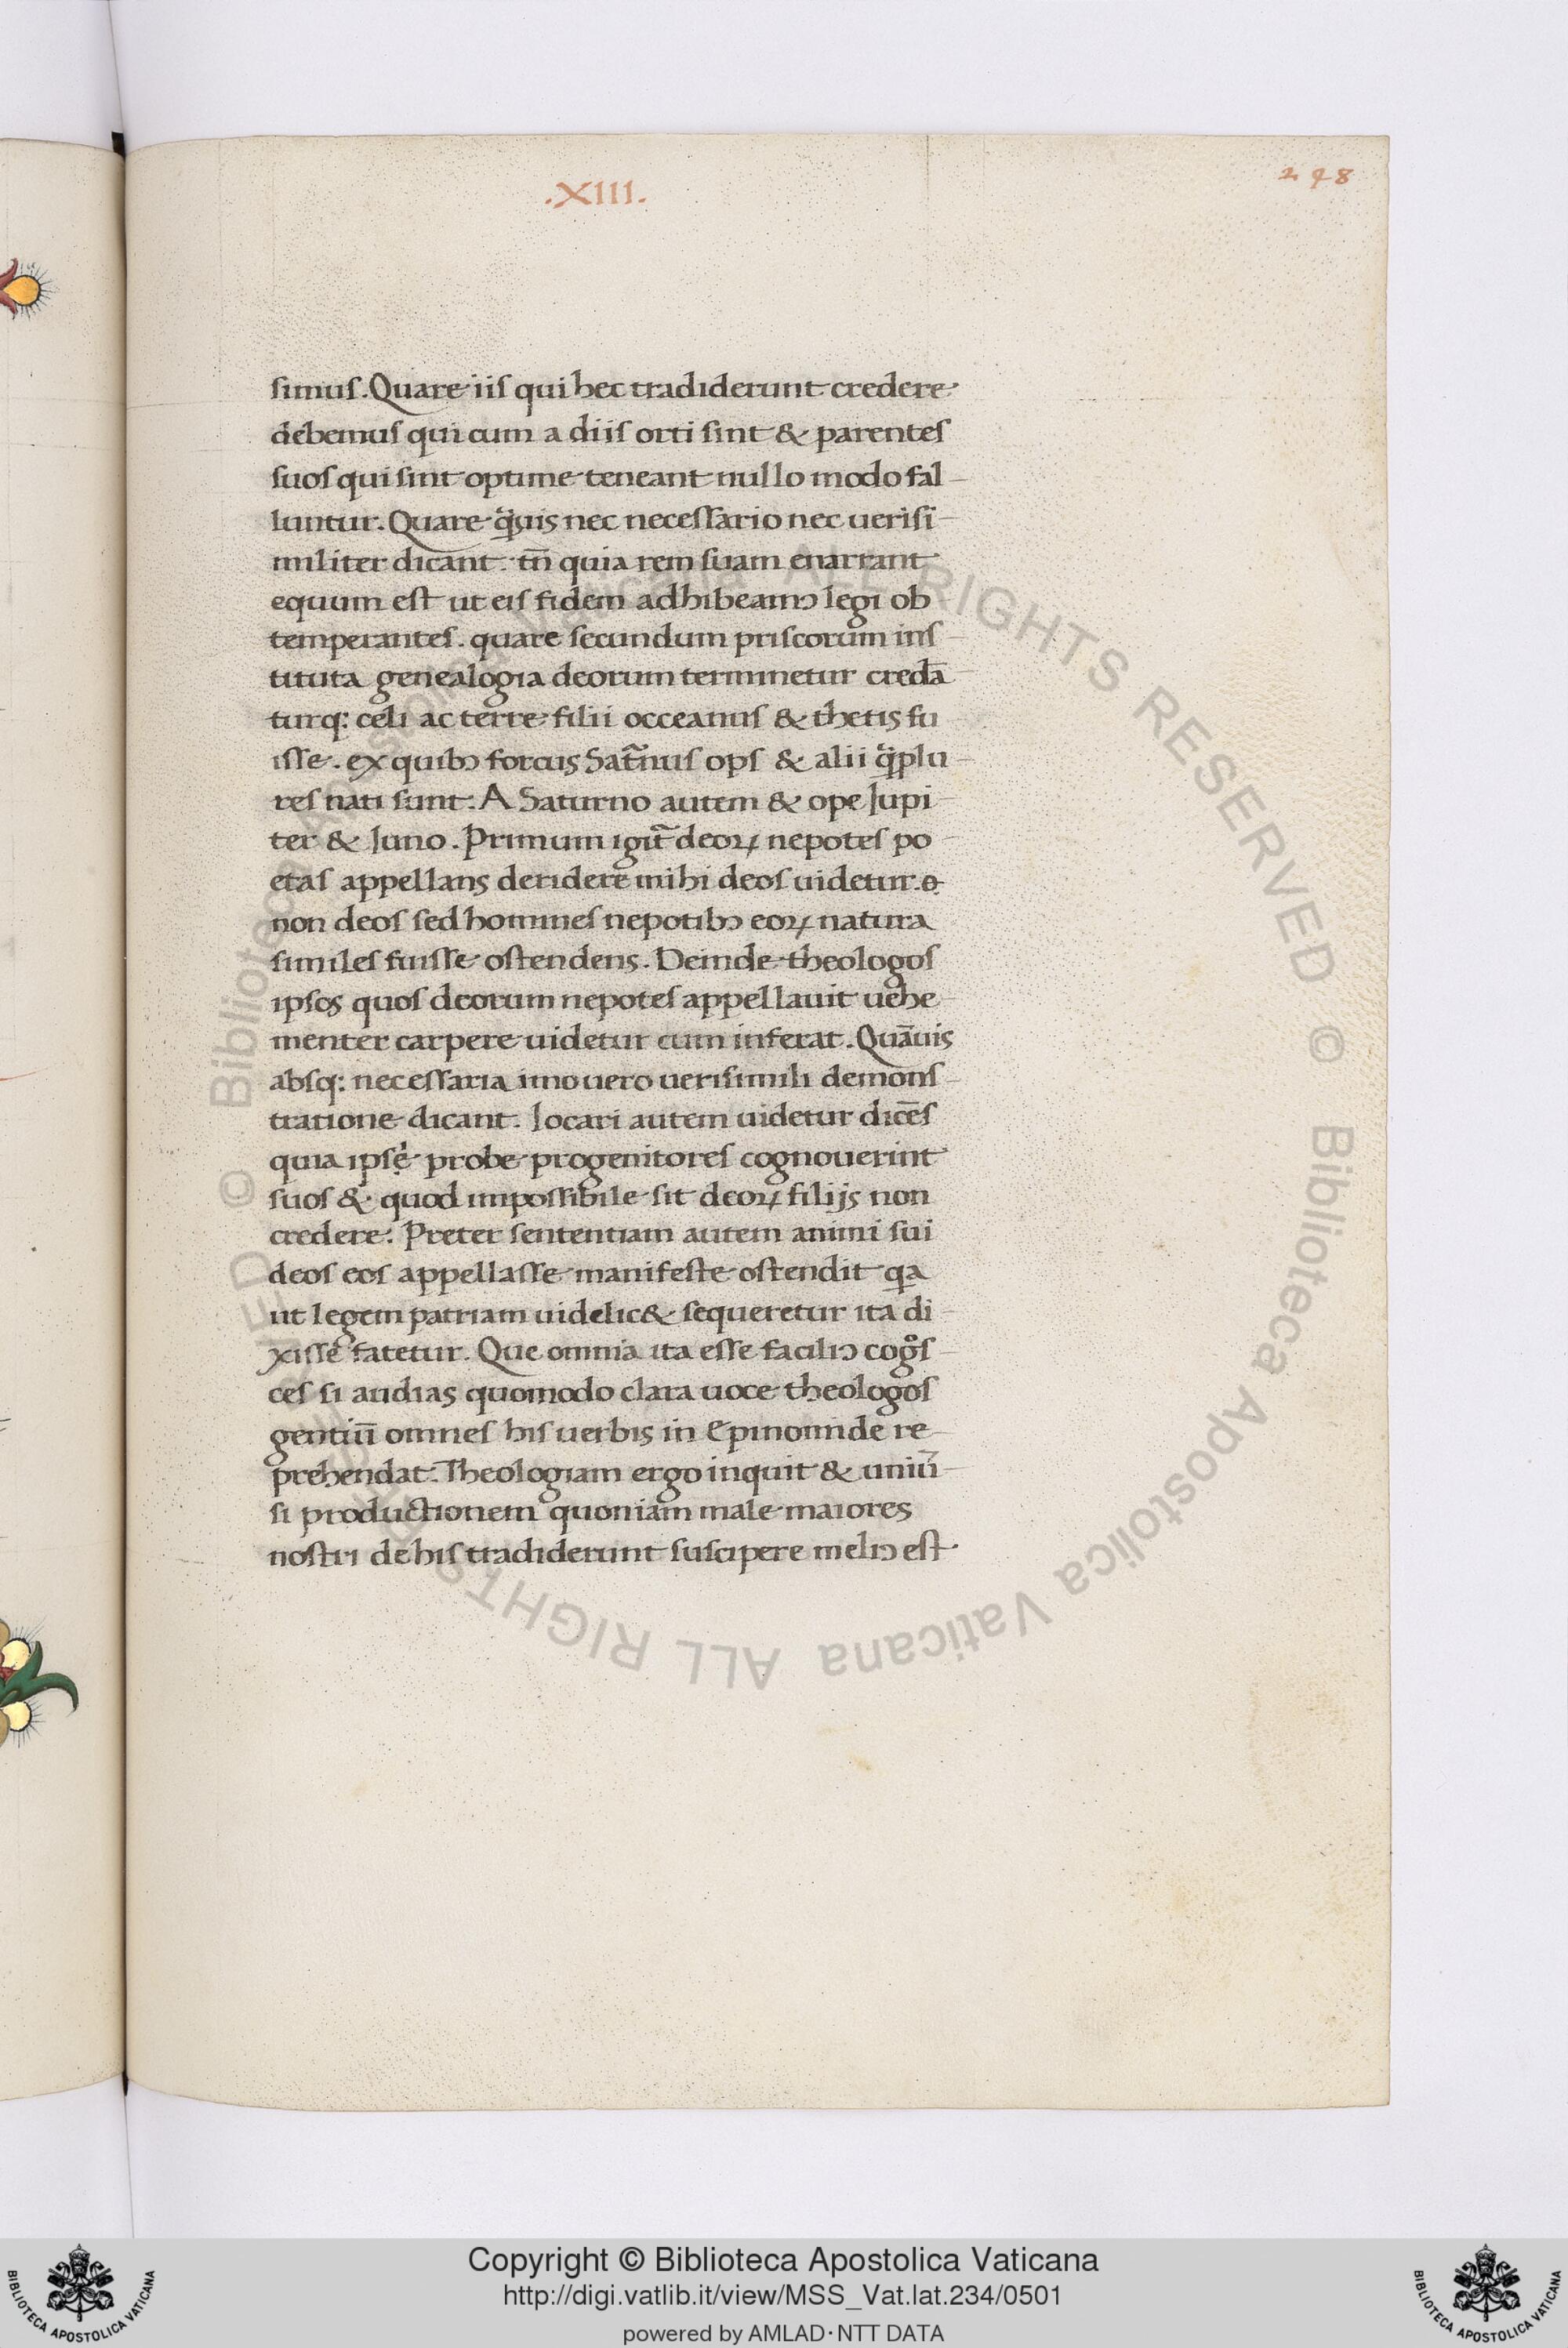 .XIII.
248
simus. Quare iis qui hec tradiderunt credere
debemus qui cum a diis orti sint & parentes
suos qui sint optime teneant nullo modo fal-
luntur. Quare q̄̃uis nec necessario nec uerisi-
militer dicant. tn̄ quia rem suam enarrant
equum est ut eis fidem adhibeamꝰ legi ob
temperantes. quare secundum priscorum ins-
tituta genealogia deorum terminetur credā-
turq: celi ac terre filii occeanus & thetis fu-
isse. ex quibꝰ forcus Sat̃nus ops & alii q̃̃plu-
res nati sunt. A Saturno autem & ope Iupi-
ter & Iuno. Primum igit̃ deoꝝ nepotes po-
etas appellans deridere mihi deos uidetur. ꝙ
non deos sed homines nepotibꝰ eoꝝ natura
similes fuisse ostendens. Deinde theologos
ipsos quos deorum nepotes appellauit uehe-
menter carpere uidetur cum inferat. Quāuis
absq: necessaria imo uero uerisimili demons-
tratione dicant. Iocari autem uidetur dicēs
quia ipse probe progenitores cognouerint
suos & quod impossibile sit deoꝝ filijs non
credere. Preter sententiam autem animi sui
deos eos appellasse manifeste ostendit qa
ut legem patriam uidelic& sequeretur ita di-
xisse fatetur. Que omnia ita esse faciliꝰ cogͦs-
ces si audias quomodo clara uoce theologos
gentiū omnes his uerbis in Epinomide re-
prehendat. Theologiam ergo inquit & uniũ-
si productionem quoniam male maiores
nostri de his tradiderunt suscipere meliꝰ est
© Biblioteca Apostolica Vaticana ALL RIGHTS RESERVED © Biblioteca Apostolica Vaticana ALL RIGHTS RESERVED
Copyright © Biblioteca Apostolica Vaticana
http://digi.vatlib.it/view/MSS_Vat.lat.234/0501
powered by AMLAD·NTT DATA
BIBLIOTECA APOSTOLICA VATICANA
BIBLIOTECA APOSTOLICA VATICANA